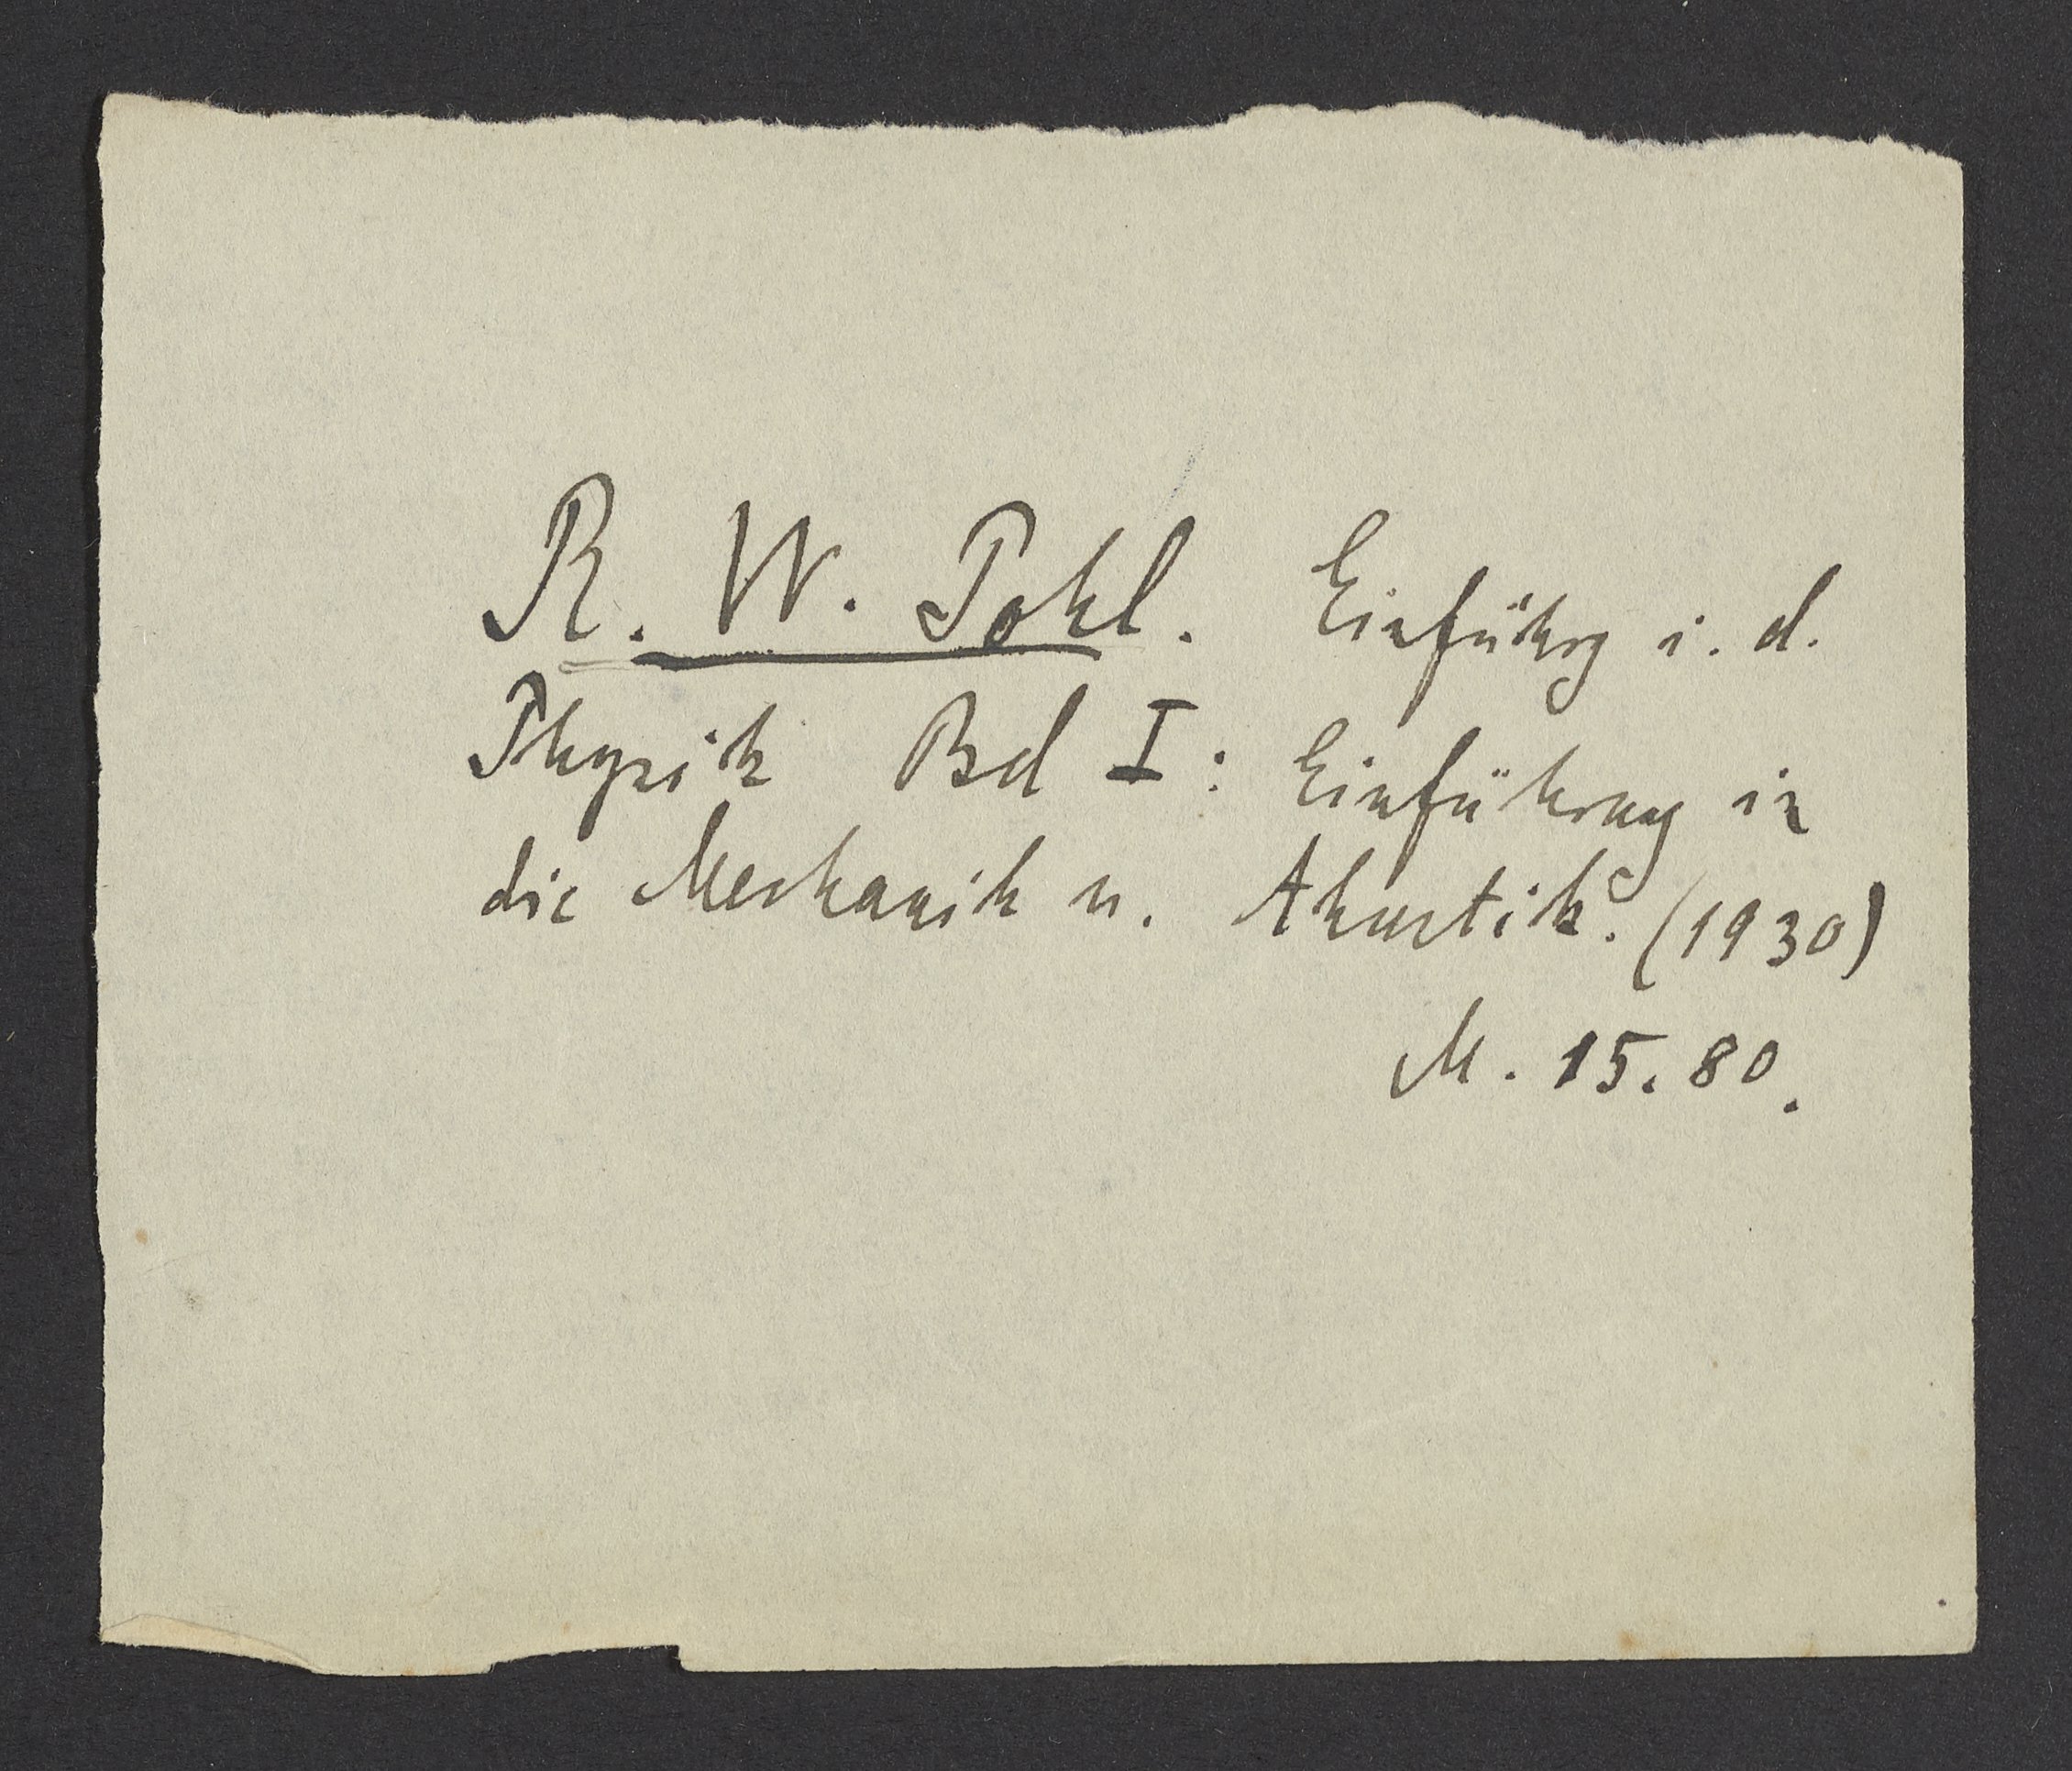 R. W. Pohl. Einführg i. d.
Physik Bd I: Einführung in
die Mechanik u. Akustik. (1930)
M. 15.80.